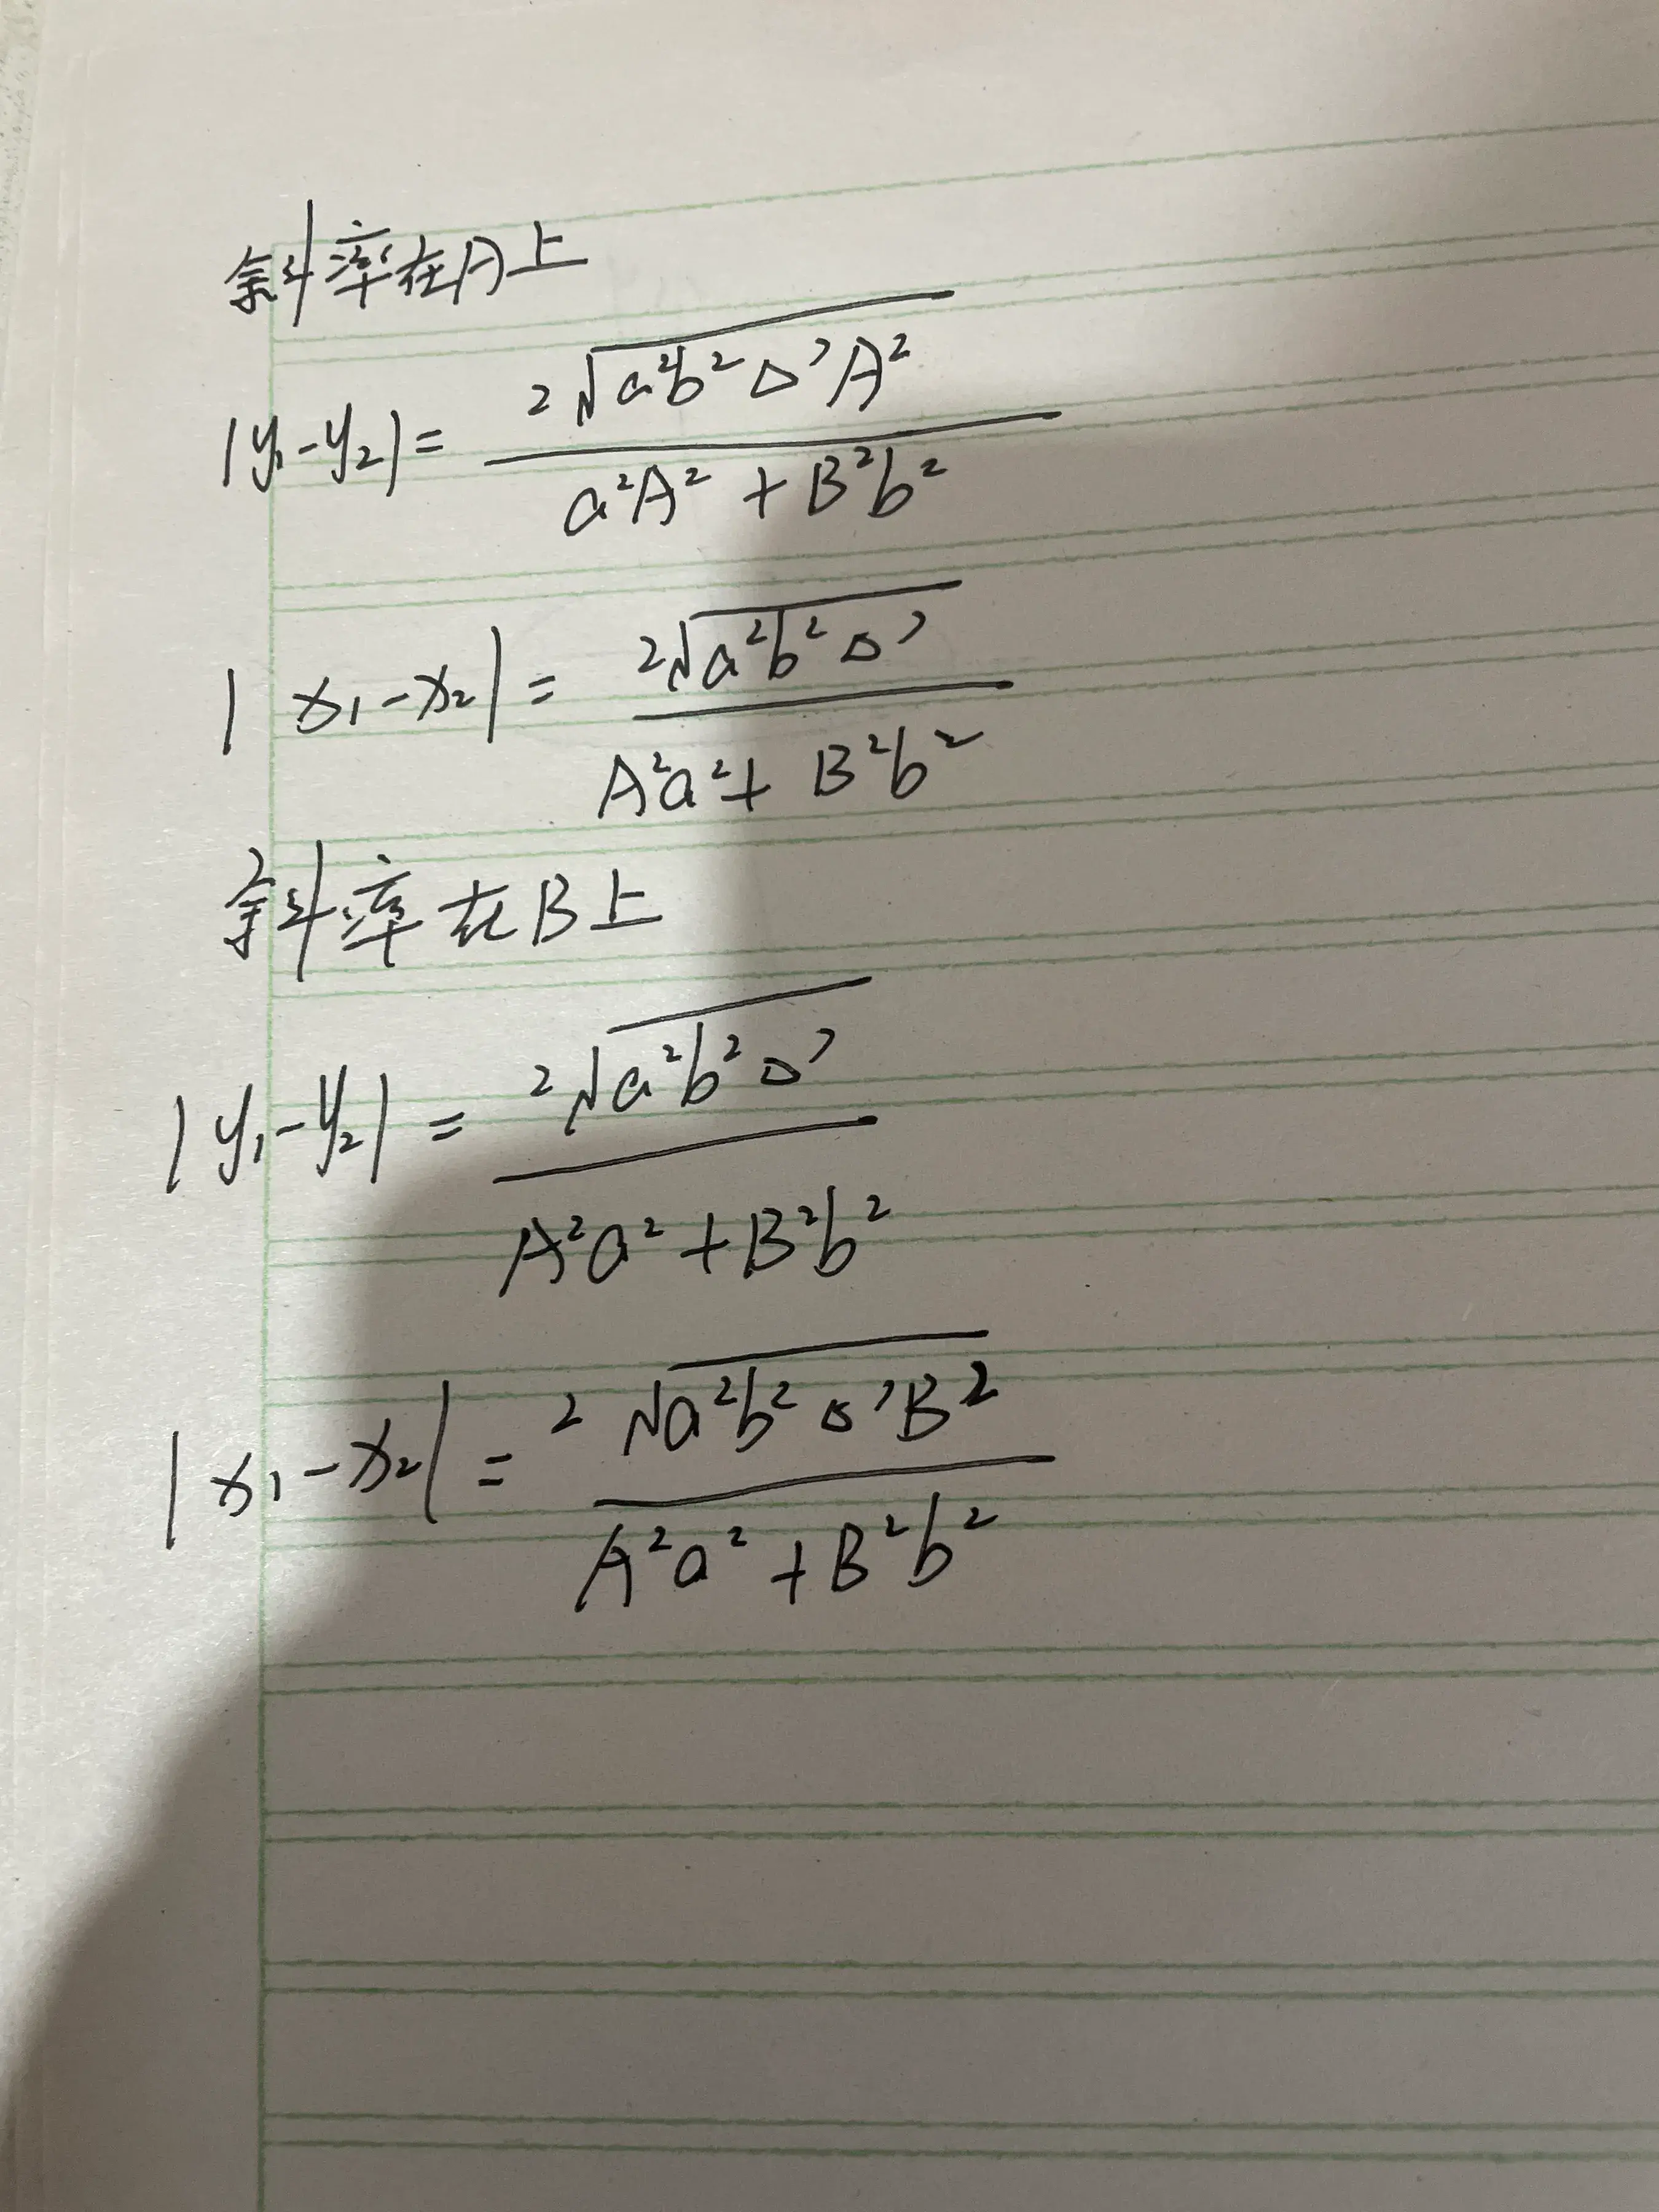 斜率在A上
|y₁-y₂|= 2√(a²b²△'A²) / (a²A²+B²b²)
|x₁-x₂|= 2√(a²b²△') / (A²a²+B²b²)
斜率在B上
|y₁-y₂|= 2√(a²b²△') / (A²a²+B²b²)
|x₁-x₂|= 2√(a²b²△'B²) / (A²a²+B²b²)